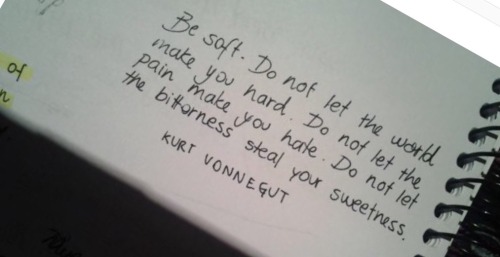 of
Be soft. Do not let the world
make you hard. Do not let the
pain make you hate. Do not let
the bitterness steal your sweetness.
KURT VONNEGUT